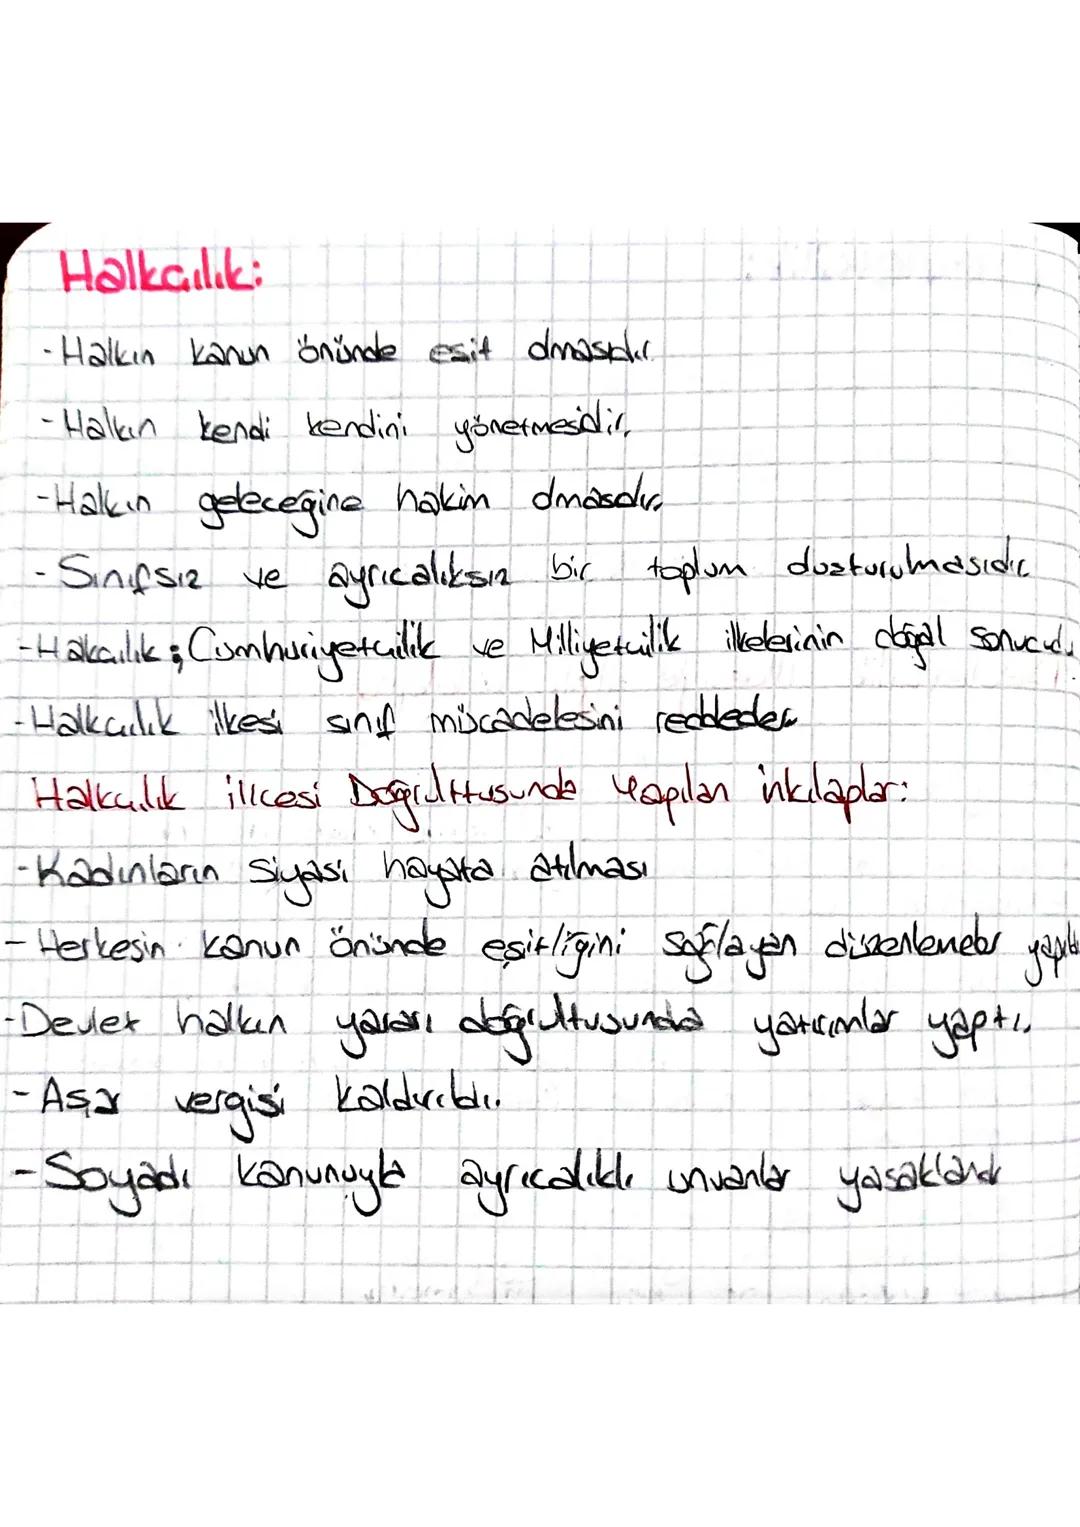 Halkçılık:
- Halkın kanun önünde eşit olmasıdır.
- Halkın kendi kendini yönetmesidir.
- Halkın geleceğine hakim olmasıdır.
- Sınıfsız ve ayrıcalıksız bir toplum oluşturulmasıdır
- Halkçılık; Cumhuriyetçilik ve Milliyetçilik ilkelerinin doğal sonucudu
- Halkçılık ilkesi sınıf mücadelesini reddeder
Halkçılık ilkesi Doğrulttusunda Yapılan inkılaplar:
- Kadınların siyasi hayata atılması
- Herkesin kanun önünde eşitliğini sağlayan düzenlemeler yapıldı
- Devlet halkın yararı doğrultusunda yatırımlar yaptı.
- Aşar vergisi kaldırıldı.
- Soyadı kanunuyla ayrıcalıklı unvanlar yasaklandı